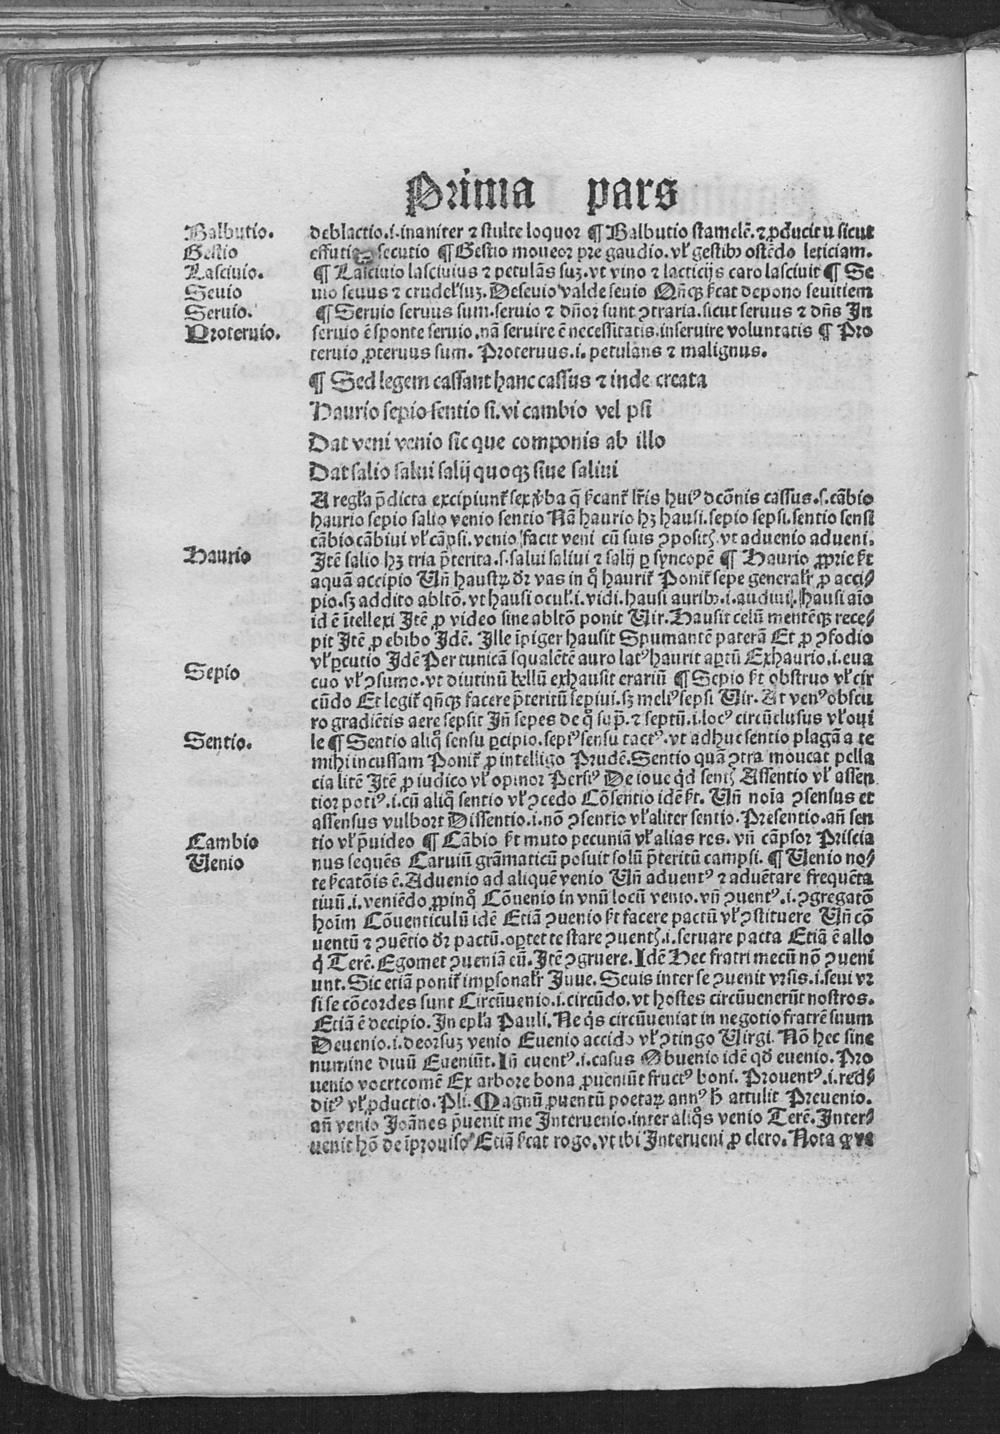 Prima pars
Balbutio.
Gestio
Lasciuio.
Seuio
Seruio.
Proteruio.
deblactio.i.inaniter ⁊ stulte loquor ¶ Balbutio stamelē. ⁊ ꝓducit u sicut
effutio secutio ¶ Gestio moueor pre gaudio. vł gestibꝰ ostēdo leticiam.
¶ Lasciuio lasciuius ⁊ petulās suꝫ. vt vino ⁊ lacticijs caro lasciuit ¶ Se
uio seuus ⁊ crudeł suꝫ. Deseuio valde seuio Qñqꝫ ſcat depono seuitiem
¶ Seruio seruus sum. seruio ⁊ dñor sunt ꝯtraria. sicut seruus ⁊ dñs In
seruio ē sponte seruio. nā seruire ē necessitatis. inseruire voluntatis ¶ Pro
teruio ꝓteruus sum. Proteruus.i. petulans ⁊ malignus.
¶ Sed legem cassant hanc cassus ⁊ inde creata
Haurio sepio sentio si. vi cambio vel psi
Dat veni venio sic que componis ab illo
Dat salio salui salij quoqꝫ siue saliui
A regła p̄dicta excipiunt᷑ sex v̄ba q̄ ſcant᷑ lr̄is huiꝰ dcōnis cassus. s. cābio
haurio sepio salio venio sentio Nā haurio hꝫ hausi. sepio sepsi. sentio sensi
cābio cābiui vł cāpsi. venio facit veni cū suis ꝯpositꝭ. vt aduenio adueni.
Haurio
Itē salio hꝫ tria p̄terita. s. salui saliui ⁊ salij ꝑ syncopē ¶ Haurio ꝓprie ē
aquā accipio Uñ haustꝝ dr̄ vas in q̊ haurit᷑ Ponit᷑ sepe generalr̄ ꝓ acci⸗
pio. sꝫ addito abltō. vt hausi ocuł. i. vidi. hausi auribꝰ. i. audiui. hausi aīo
id ē ītellexi Itē ꝓ video sine abltō ponit Uir. Hausit celū mentēqꝫ rece⸗
pit Itē ꝓ ebibo Idē. Ille īpiger hausit Spumantē paterā Et ꝓ ꝯfodio
vł ꝑcutio Idē Per tunicā squalētē auro latꝰ haurit apertū Exhaurio. i. eua
Sepio
cuo vł ꝯsumo. vt diutinū bellū exhausit erariū ¶ Sepio ē obstruo vł cir
cūdo Et legit᷑ qñqꝫ facere p̄teritū sepiui. sꝫ meliꝰ sepsi Uir. At venꝰ obscu
ro gradiētis aere sepsit Iñ sepes de q̄ supͣ. ⁊ septū. i. locꝰ circūclusus vł oui
Sentio.
le ¶ Sentio aliq̊ sensu ꝑcipio. sepiꝰ sensu tactꝰ. vt adhuc sentio plagā a te
mihi incussam Ponit᷑ ꝓ intelligo Prudē. Sentio quā ꝯtra moueat pella
cia litē Itē ꝓ iudico vł opinor Persiꝰ De ioue qͥd sentꝭ Assentio vł assen
tior potiꝰ. i. cū aliq̊ sentio vł ꝯcedo Cōsentio idē ē. Uñ noīa ꝯsensus et
assensus vulbort Dissentio. i. nō ꝯsentio vł aliter sentio. Presentio. añ sen
Cambio
tio vł p̄uideo ¶ Cābio ē muto pecuniā vł alias res. vñ cāpsor Priscia
Uenio
nus sequēs Caruiū grāmaticū posuit solū p̄teritū campsi. ¶ Uenio no⸗
te ſcatōis ē. Aduenio ad aliquē venio Uñ aduentꝰ ⁊ aduētare frequēta
tiuū. i. veniēdo ꝓpinq̊ Cōuenio in vnū locū venio. vñ ꝯuentꝰ. i. ꝯgregatō
hoīm Cōuenticulū idē Etiā ꝯuenio ē facere pactū vł ꝯstituere Uñ cō
uentū ⁊ ꝯuētio dr̄ pactū. oꝑtet te stare ꝯuentꝭ. i. seruare pacta Etiā ē allo
q̊ Terē. Egomet ꝯueniā eū. Itē ꝯgruere. Idē Hec fratri mecū nō ꝯueni
unt. Sic etiā ponit᷑ imꝑsonalr̄ Juue. Seuis inter se ꝯuenit vrsis. i. seui vr
si se cōcordes sunt Circūuenio. i. circūdo. vt hostes circūuenerūt nostros.
Etiā ē decipio. In epła Pauli. Ne qͥs circūueniat in negotio fratrē suum
Deuenio. i. deorsuꝫ venio Euenio accido vł ꝯtingo Uirgi. Nō hec sine
numine diuū Eueniūt. Iñ euentꝰ. i. casus Obuenio idē qd̄ euenio. Pro
uenio voertcomē Ex arbore bona ꝓueniūt fructꝰ boni. Prouentꝰ. i. red⸗
ditꝰ vł ꝓductio. Pli. Magnū ꝓuentū poetaꝝ annꝰ h̄ attulit Preuenio.
añ venio Joānes p̄uenit me Interuenio. inter aliq̊s venio Terē. Inter⸗
uenit hō de īprouiso Etiā ſcat rogo. vt ibi Interueni ꝓ clero. Nota ꝙ ve